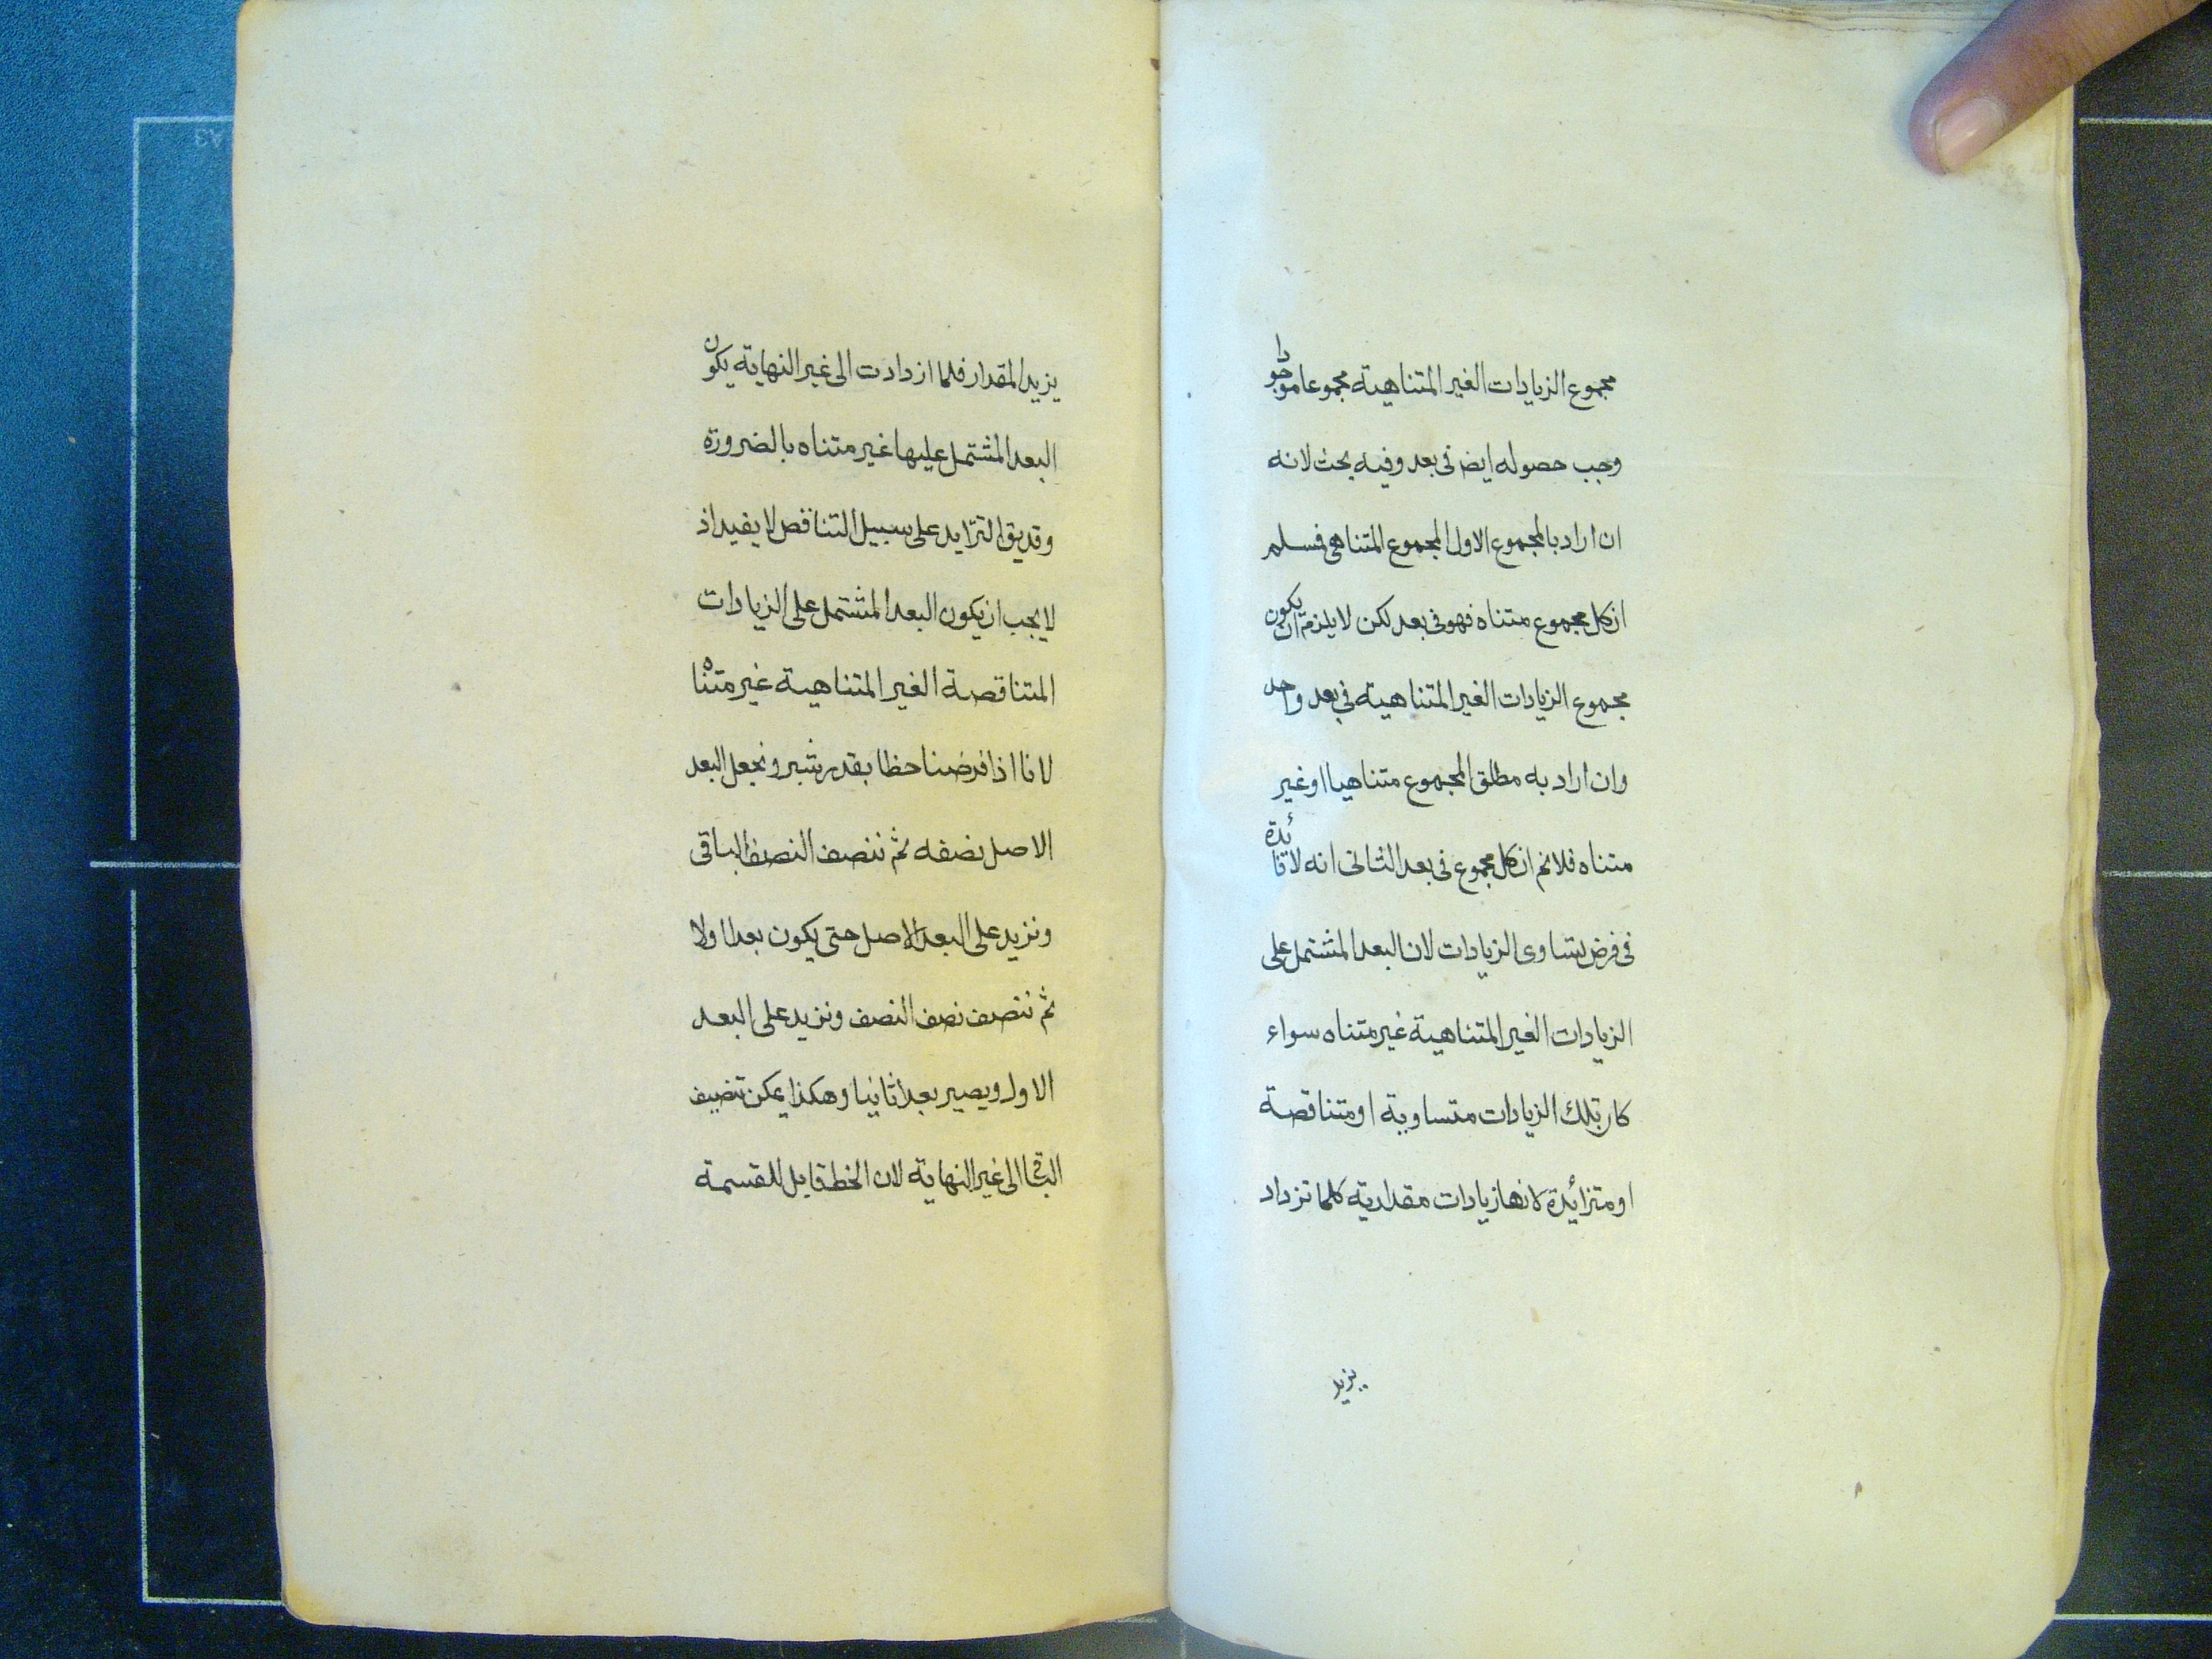 مجموع الزيادات الغير المتناهية مجموعا موجودا
وجب حصوله ايض فى بعد وفيه بحث لانه
ان اراد بالمجموع الاول المجموع المتناهى فسلم
ان كل مجموع متناه فهو فى بعد لكن لا يلزم ان يكون
مجموع الزيادات الغير المتناهية فى بعد واحد
وان اراد به مطلق المجموع متناهيا او غير
متناه فلانم ان كل مجموع فى بعد الثانى انه لا فائدة
فى فرض تساوى الزيادات لان البعد المشتمل على
الزيادات الغير المتناهية غير متناه سواء
كان تلك الزيادات متساوية او متناقصة
او متزائدة لانها زيادات مقدارية كلما تزداد
يزيد
يزيد المقدار فلما ازدادت الى غير النهاية يكون
البعد المشتمل عليها غير متناه بالضرورة
وقد يق التزايد على سبيل التناقص لا يفيد اذ
لا يجب ان يكون البعد المشتمل على الزيادات
المتناقصة الغير المتناهية غير متناه
لانا اذا فرضنا حظا بقدر شبر ونجعل البعد
الاصل نصفه ثم ننصف النصف الباقى
ونزيد على البعد الاصل حتى يكون بعدا اولا
ثم ننصف نصف النصف ونزيد على البعد
الاول ويصير بعدا ثانيا وهكذا يمكن تنصيف
الباقى الى غير النهاية لان الخط قابل للقسمة